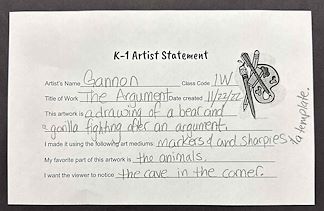 K-1 Artist Statement
Artist's Name Gannon Class Code 1W
Title of Work The Argument Date created 11/22/22
This artwork is a drawing of a bear and
a gorilla fighting after an argument.
I made it using the following art mediums: markers and sharpies + a template.
My favorite part of this artwork is the animals.
I want the viewer to notice the cave in the corner.